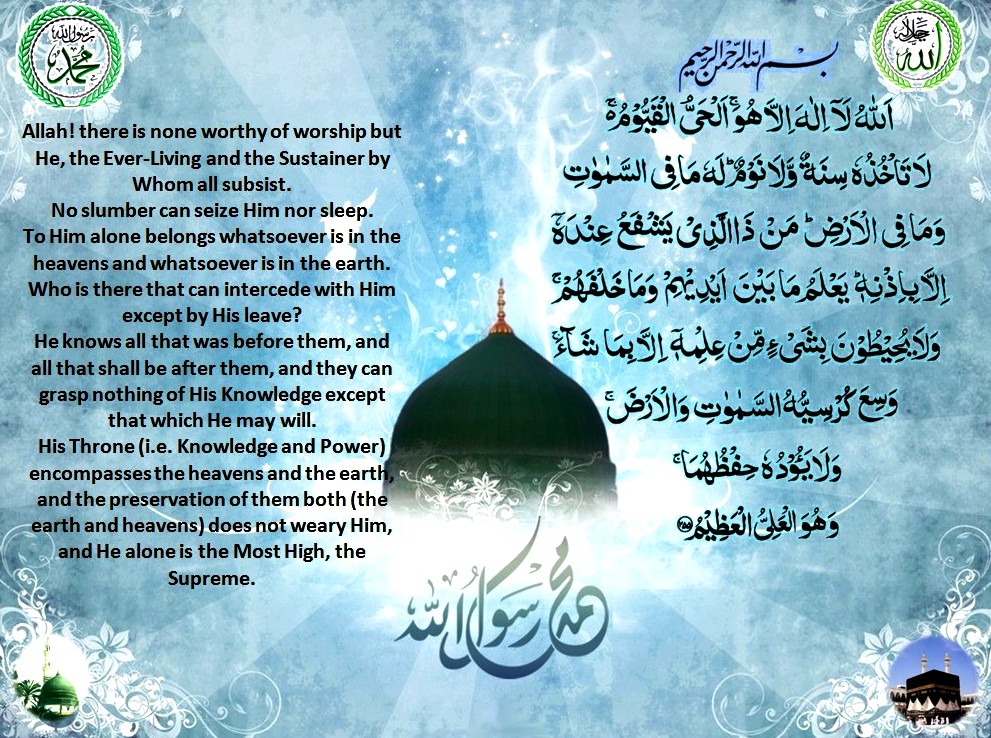 رسول الله
محمد
جل جلاله
الله
Allah! there is none worthy of worship but
He, the Ever-Living and the Sustainer by
Whom all subsist.
No slumber can seize Him nor sleep.
To Him alone belongs whatsoever is in the
heavens and whatsoever is in the earth.
Who is there that can intercede with Him
except by His leave?
He knows all that was before them, and
all that shall be after them, and they can
grasp nothing of His Knowledge except
that which He may will.
His Throne (i.e. Knowledge and Power)
encompasses the heavens and the earth,
and the preservation of them both (the
earth and heavens) does not weary Him,
and He alone is the Most High, the
Supreme.
بسم الله الرحمن الرحيم
اَللّٰهُ لَآ اِلٰهَ اِلَّا هُوَۚ اَلْحَیُّ الْقَیُّوْمُ۬ۚ
لَا تَاْخُذُهٗ سِنَةٌ وَّلَا نَوْمٌؕ لَهٗ مَا فِی السَّمٰوٰتِ
وَمَا فِی الْاَرْضِؕ مَنْ ذَا الَّذِیْ یَشْفَعُ عِنْدَهٗۤ
اِلَّا بِاِذْنِهٖؕ یَعْلَمُ مَا بَیْنَ اَیْدِیْهِمْ وَمَا خَلْفَهُمْۚ
وَلَا یُحِیْطُوْنَ بِشَیْءٍ مِّنْ عِلْمِهٖۤ اِلَّا بِمَا شَآءَۚ
وَسِعَ كُرْسِیُّهُ السَّمٰوٰتِ وَالْاَرْضَۚ
وَلَا یَـُٔوْدُهٗ حِفْظُهُمَاۚ
وَهُوَ الْعَلِیُّ الْعَظِیْمُ ۝۲۵۵
محمد رسول الله